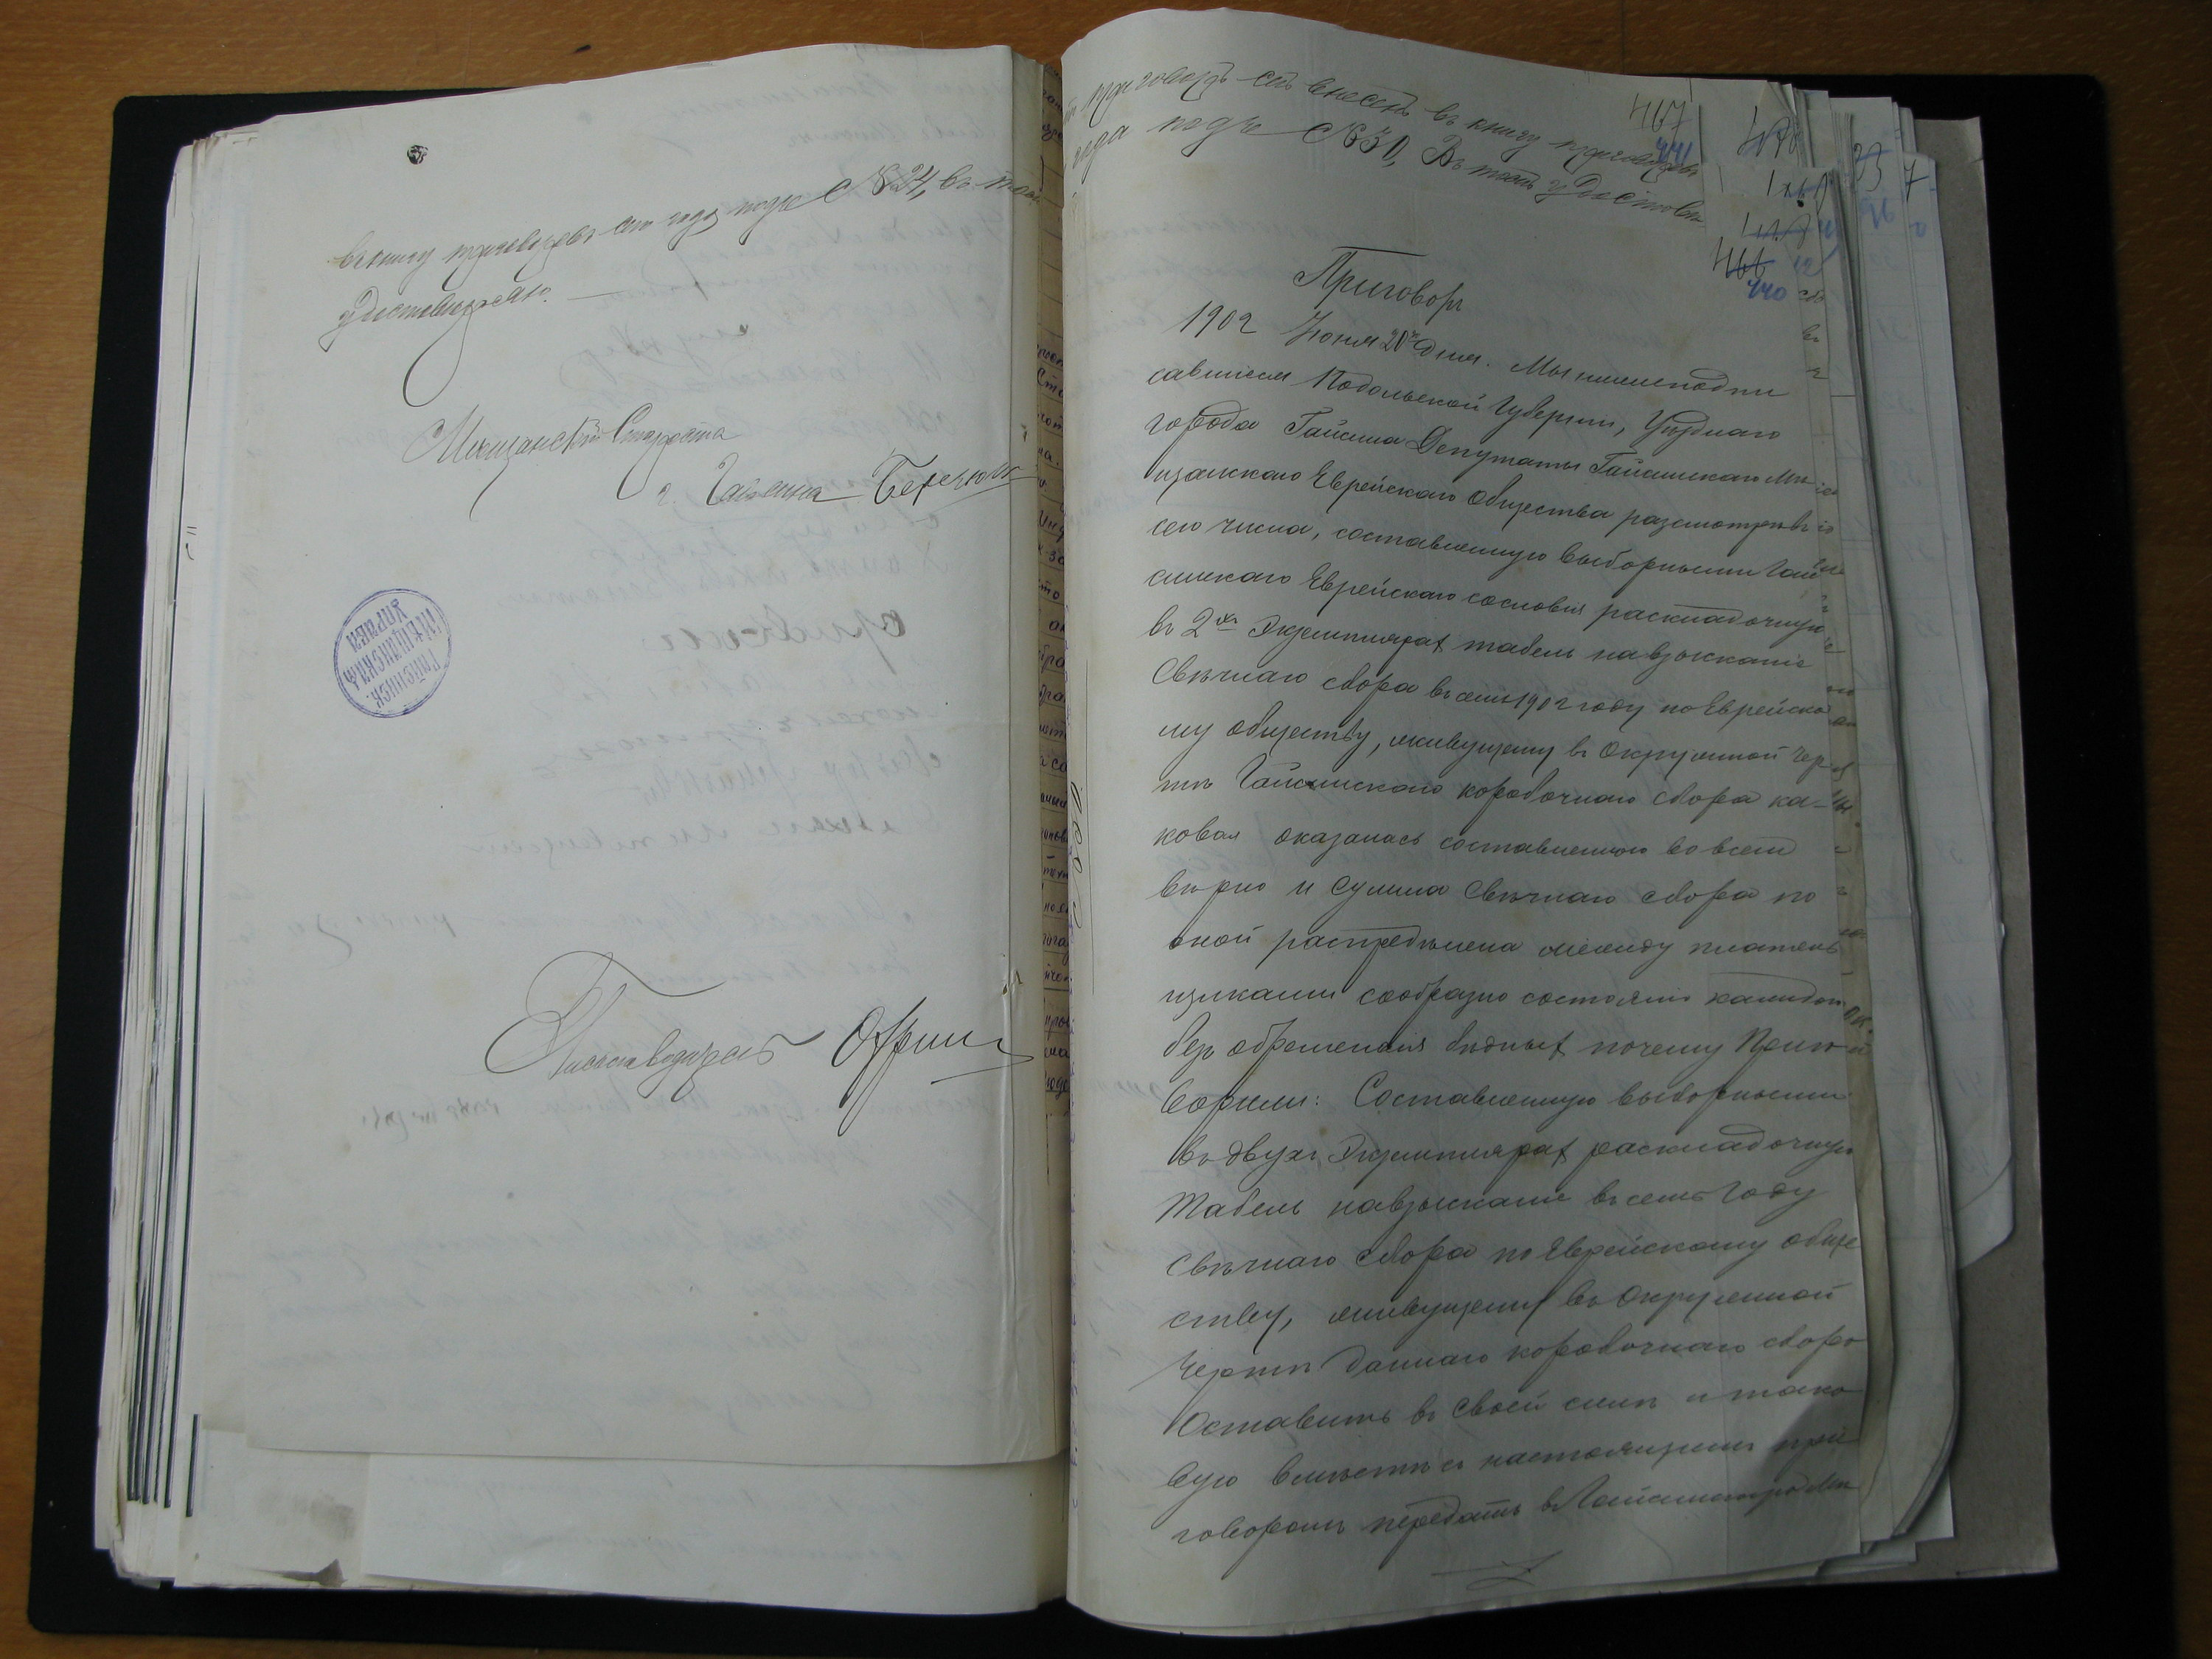 въ книгу приговоровъ сего года подъ № 24, въ томъ
удостовѣряю.
Мѣщанскій Староста
г. Гайсина
ГАЙСИНСК.
МѢЩАНСКАЯ
УПРАВА
Письмоводитель
приговоръ сей внесенъ въ книгу приговоровъ
года подъ № 30, Въ томъ удостовѣ
467
441
466
440
Приговоръ
1902 Іюня 20 дня. Мы нижеподпи
савшіеся Подольской Губерніи, Уѣзднаго
города Гайсина Депутаты Гайсинскаго Мѣ
щанскаго Еврейскаго Общества разсмотрѣвъ
сего числа, составленную выборными Гай
синскаго Еврейскаго сословія раскладочную
въ 2хъ Экземплярах табель на взысканіе
Свѣчнаго сбора въ семъ 1902 году по Еврейско
му обществу, живущему въ Окружной чер
тѣ Гайсинскаго коробочнаго сбора ка-
ковая оказалась составленною во всемъ
вѣрно и сумма Свѣчнаго сбора по
оной распредѣлена между платель
щиками сообразно состоянію каждаго
безъ обремененія бѣдных почему Приго
ворили: Составленную выборными
въ двухъ Экземплярах раскладочную
табель на взысканіе въ семъ году
Свѣчнаго сбора по Еврейскому обще
ству, живущему въ Окружной
чертѣ даннаго коробочнаго сбора
Оставить въ своей силѣ и тако
вую вмѣстѣ съ настоящимъ при
говоромъ передать въ